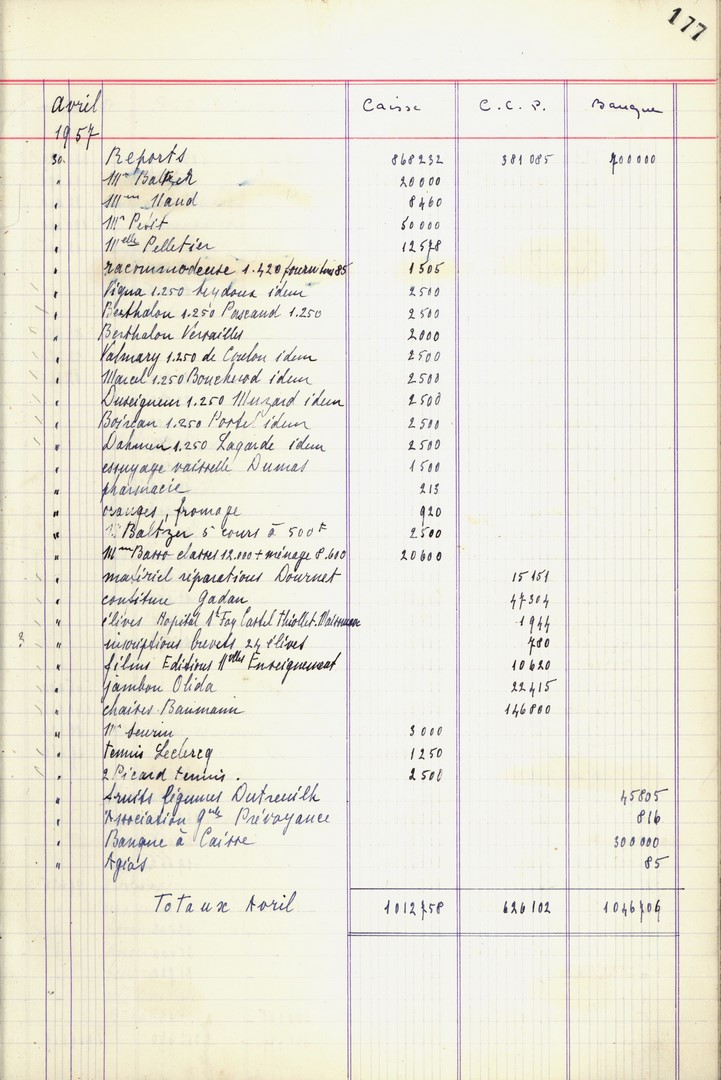 177
Avril Caisse C.C.P. Banque
1957
30. Reports 868232 381085 700000
" Mr Baltzer 20000
" Mme Naud 8460
" Mr Petit 50000
" Melle Pelletier 12578
" raccommodeuse 1.420 fournitures 85 1505
" Vigna 1.250 Seydoux idem 2500
" Berthalon 1.250 Pascaud 1.250 2500
" Berthalon Versailles 2000
" Valmary 1.250 de Coulon idem 2500
" Marcel 1.250 Boucherod idem 2500
" Duseigneur 1.250 Muzard idem 2500
" Boirean 1.250 Portel idem 2500
" Dahmen 1.250 Lagarde idem 2500
" essuyage vaisselle Dumas 1500
" pharmacie 213
" oranges, fromage 920
" Baltzer 5 cours à 500F 2500
" Mme Basso classes 12.000 + ménage 8.600 20600
" matériel réparations Dournet 15151
" confiture Gadan 47304
" élèves Hopital Ste Foy Castel Thiollet 1944
? " inscriptions brevets 24 élèves 780
" films Editions Nvelles Enseignement 10620
" jambon Olida 22415
" chaises Baumann 146800
" Mr Seurin 3000
" tennis Leclercq 1250
" 2 Picard tennis. 2500
" fruits légumes Dutreuilh 45805
" Association Gnle Prévoyance 816
" Banque à Caisse 300000
" Agios 85
Totaux Avril 1012758 626102 1046706